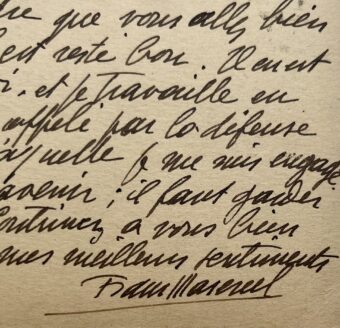 que vous allez bien
est resté bon. Il en est
, et je travaille en
appelé par la défense
laquelle je me suis engagé
avenir ; il faut garder
Continuez à vous bien
mes meilleurs sentiments
Frans Masereel